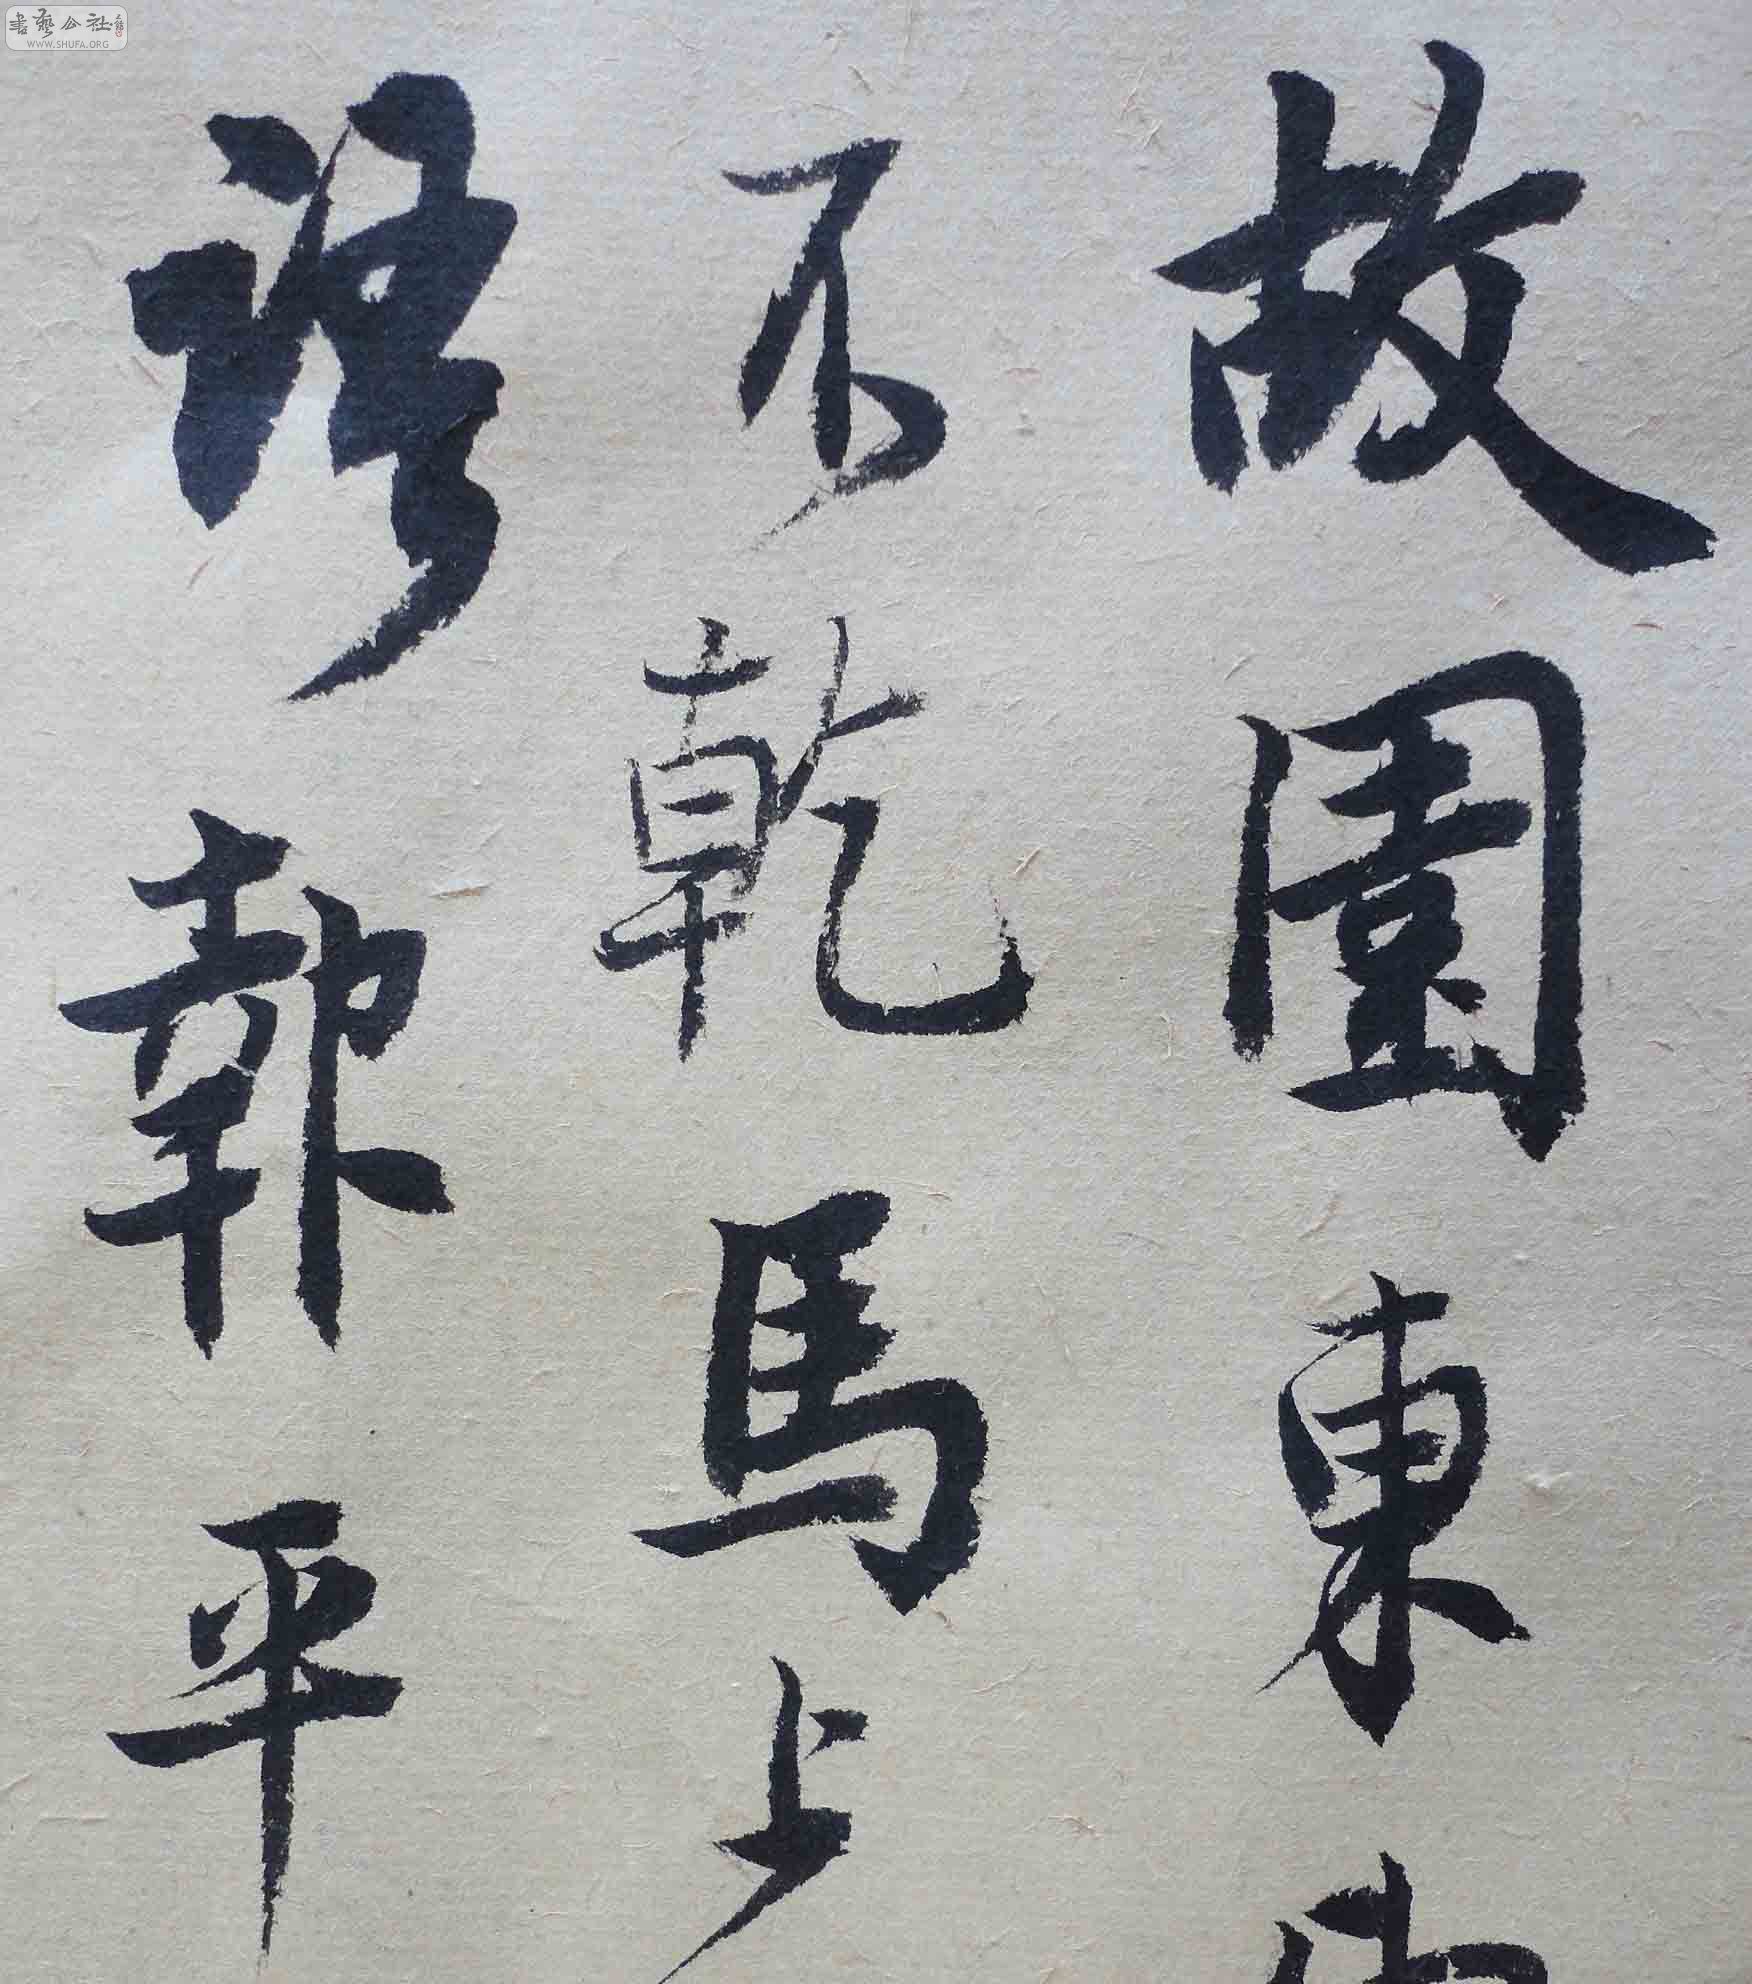 書藝公社
WWW.SHUFA.ORG
故園東
不乾馬上
語報平